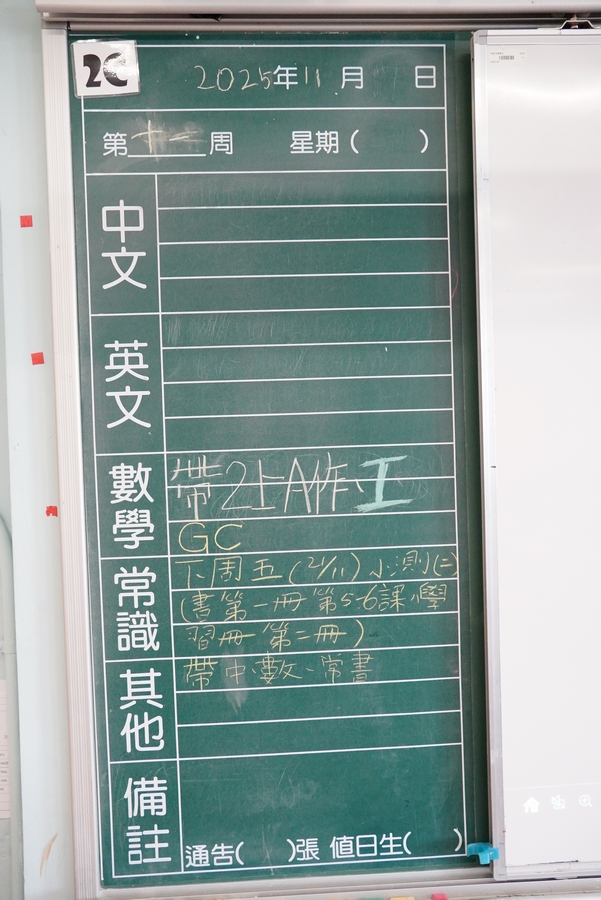 2C
2025年11月 日
第十一周 星期( )
中文
英文
數學
帶2上A作、工
GC
常識
下周五(21/11)小測(二)
(書第一冊第5-6課、學
習冊第二冊)
其他
帶中、數、常書
備註
通告( )張 值日生( )